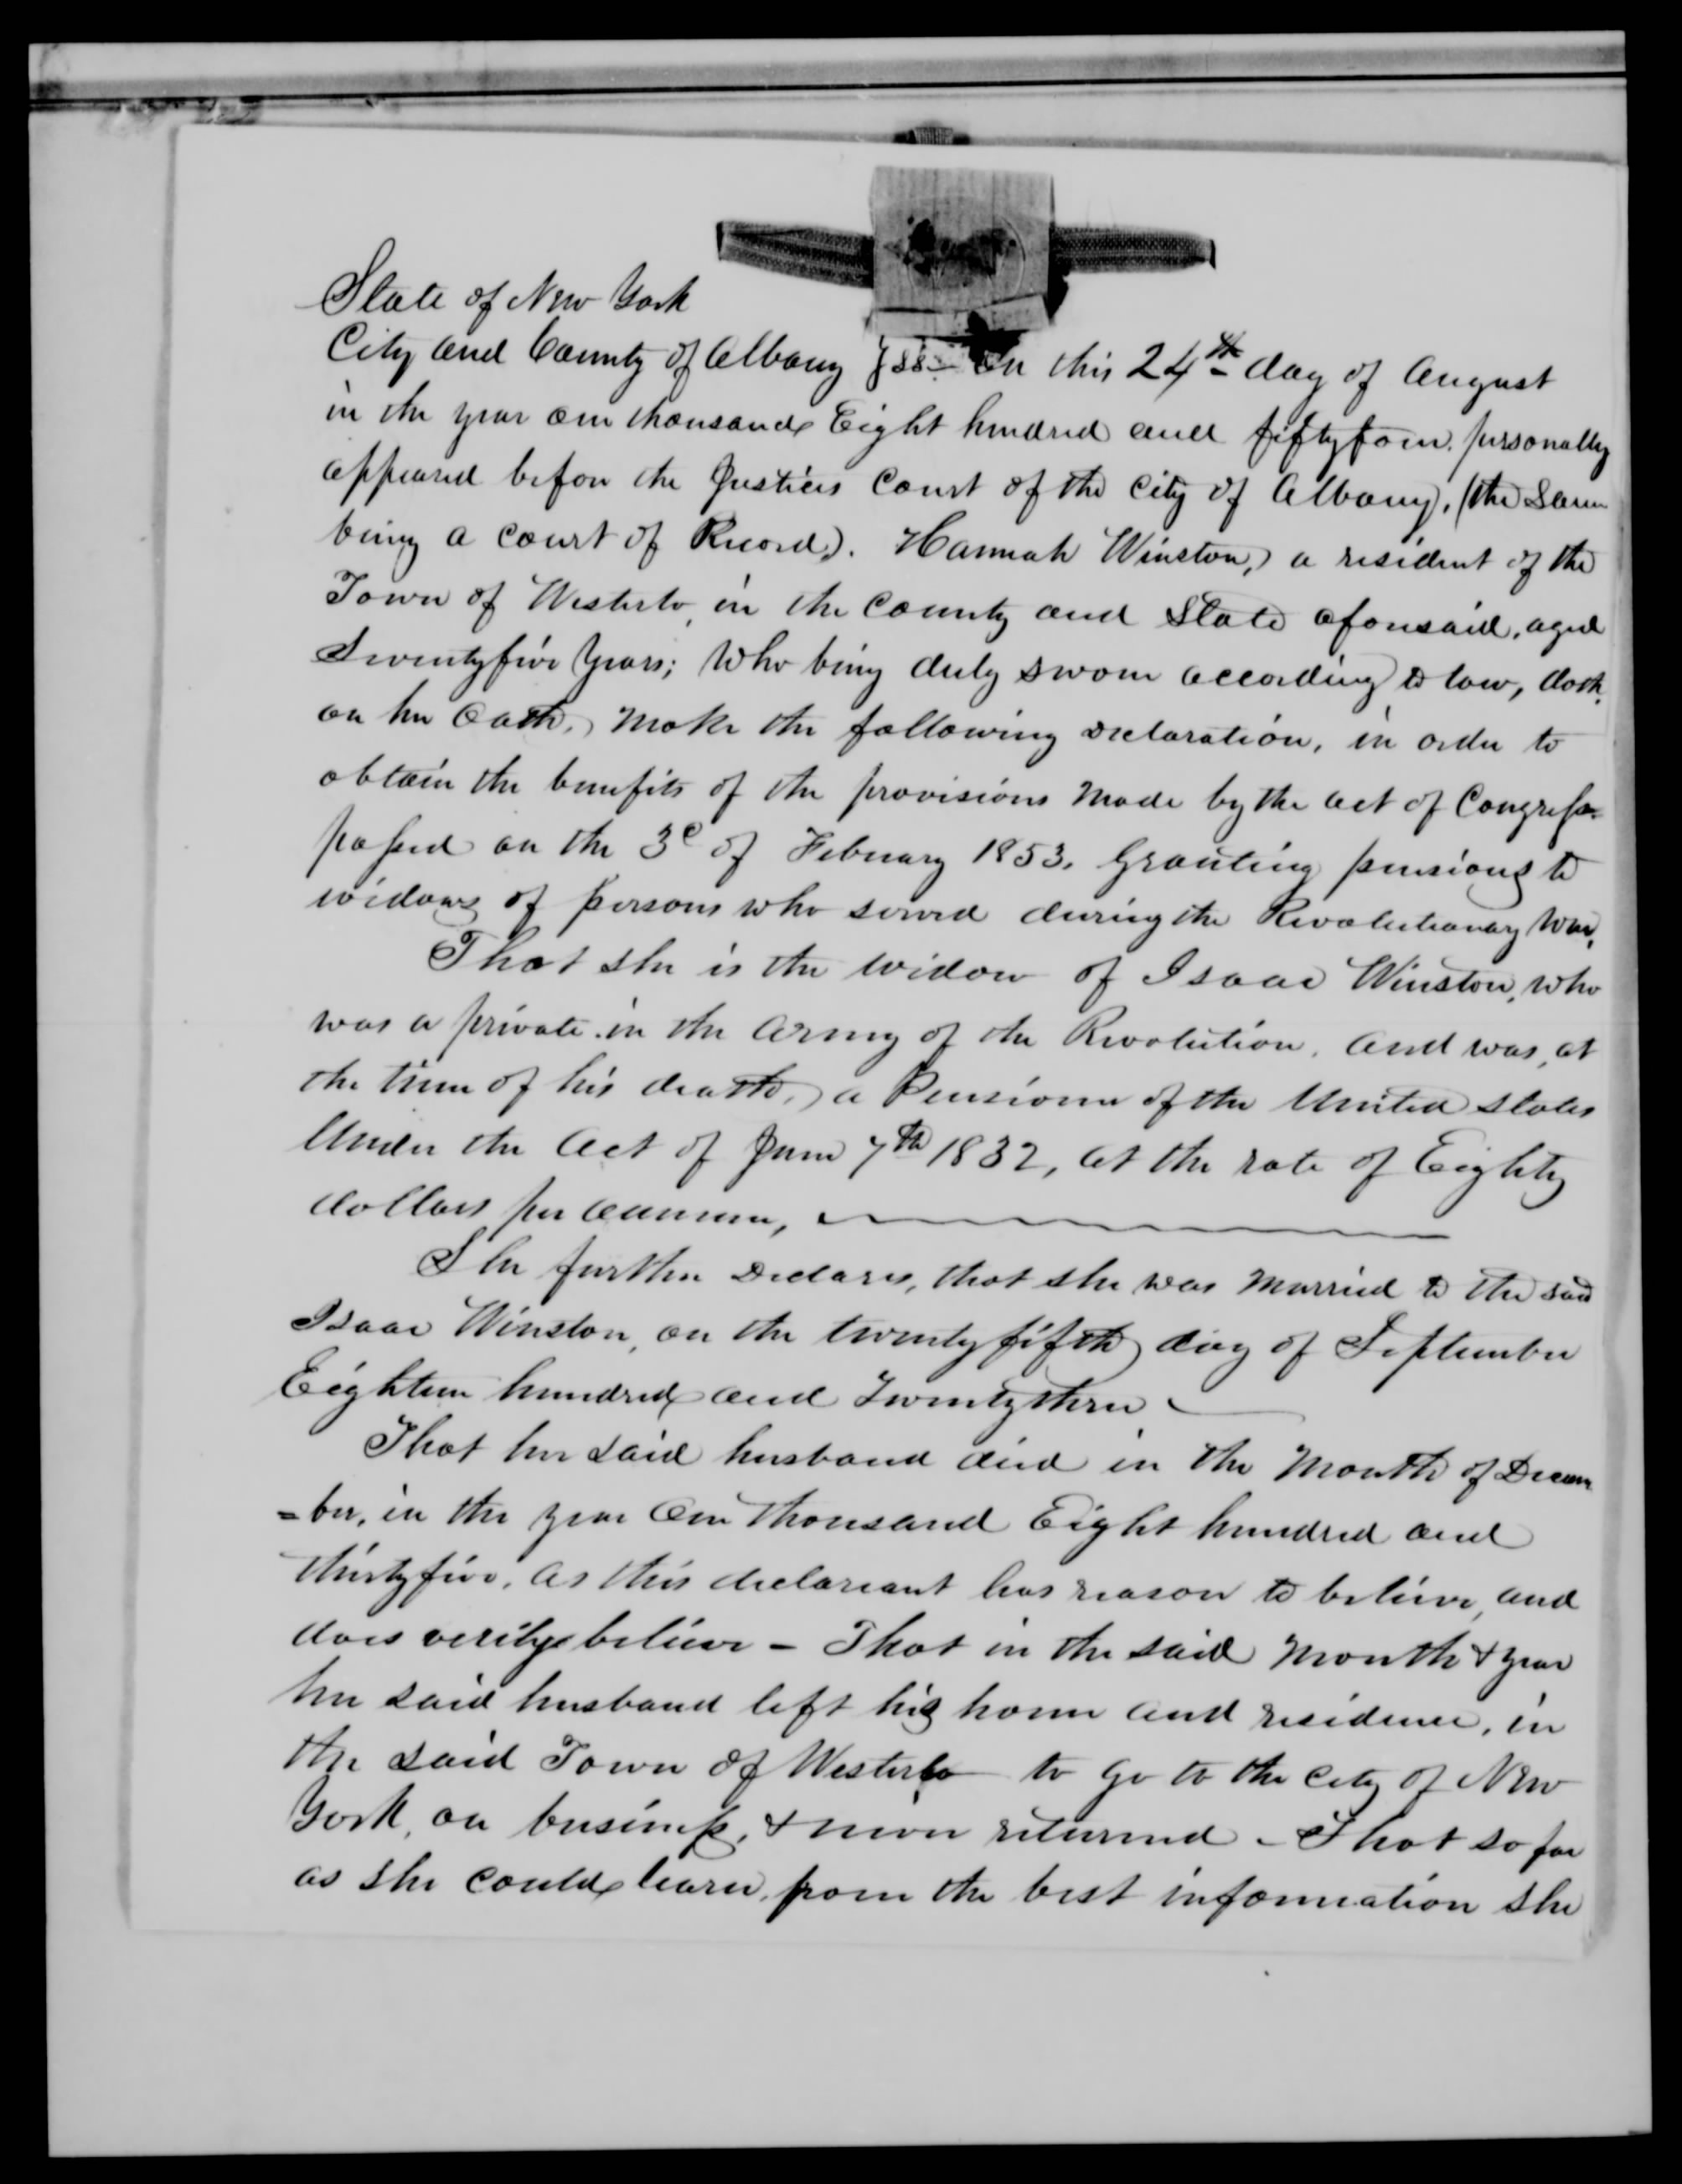 State of New York
City and County of Albany } ss. On this 24th day of August
in the year one thousand Eight hundred and fiftyfour. personally
appeared before the Justices Court of the City of Albany, (the Same
being a Court of Record). Hannah Winston, a resident of the
Town of Westerlo, in the County and State aforesaid, aged
Seventyfive Years; Who being duly sworn according to law, doth,
on her Oath, Make the following Declaration, in order to
obtain the benefits of the provisions Made by the act of Congress
passed on the 3d of February 1853. Granting pensions to
widows of persons who served during the Revolutionary War,
That she is the widow of Isaac Winston, who
was a private in the Army of the Revolution. And was, at
the time of his death, a Pensioner of the United States
Under the Act of June 7th 1832, at the rate of Eighty
dollars per annum,
She further Declares, that she was Married to the said
Isaac Winston, on the twentyfifth day of September
Eighteen hundred and Twentythree
That her said husband died in the Month of Decem
=ber, in the year One thousand Eight hundred and
thirtyfive. as this declarant has reason to believe, and
does verily believe - That in the said Month & year
her said husband left his home and residence, in
the said Town of Westerlo to go to the City of New
York, on business, & never returned - That so far
as she could learn, from the best information she